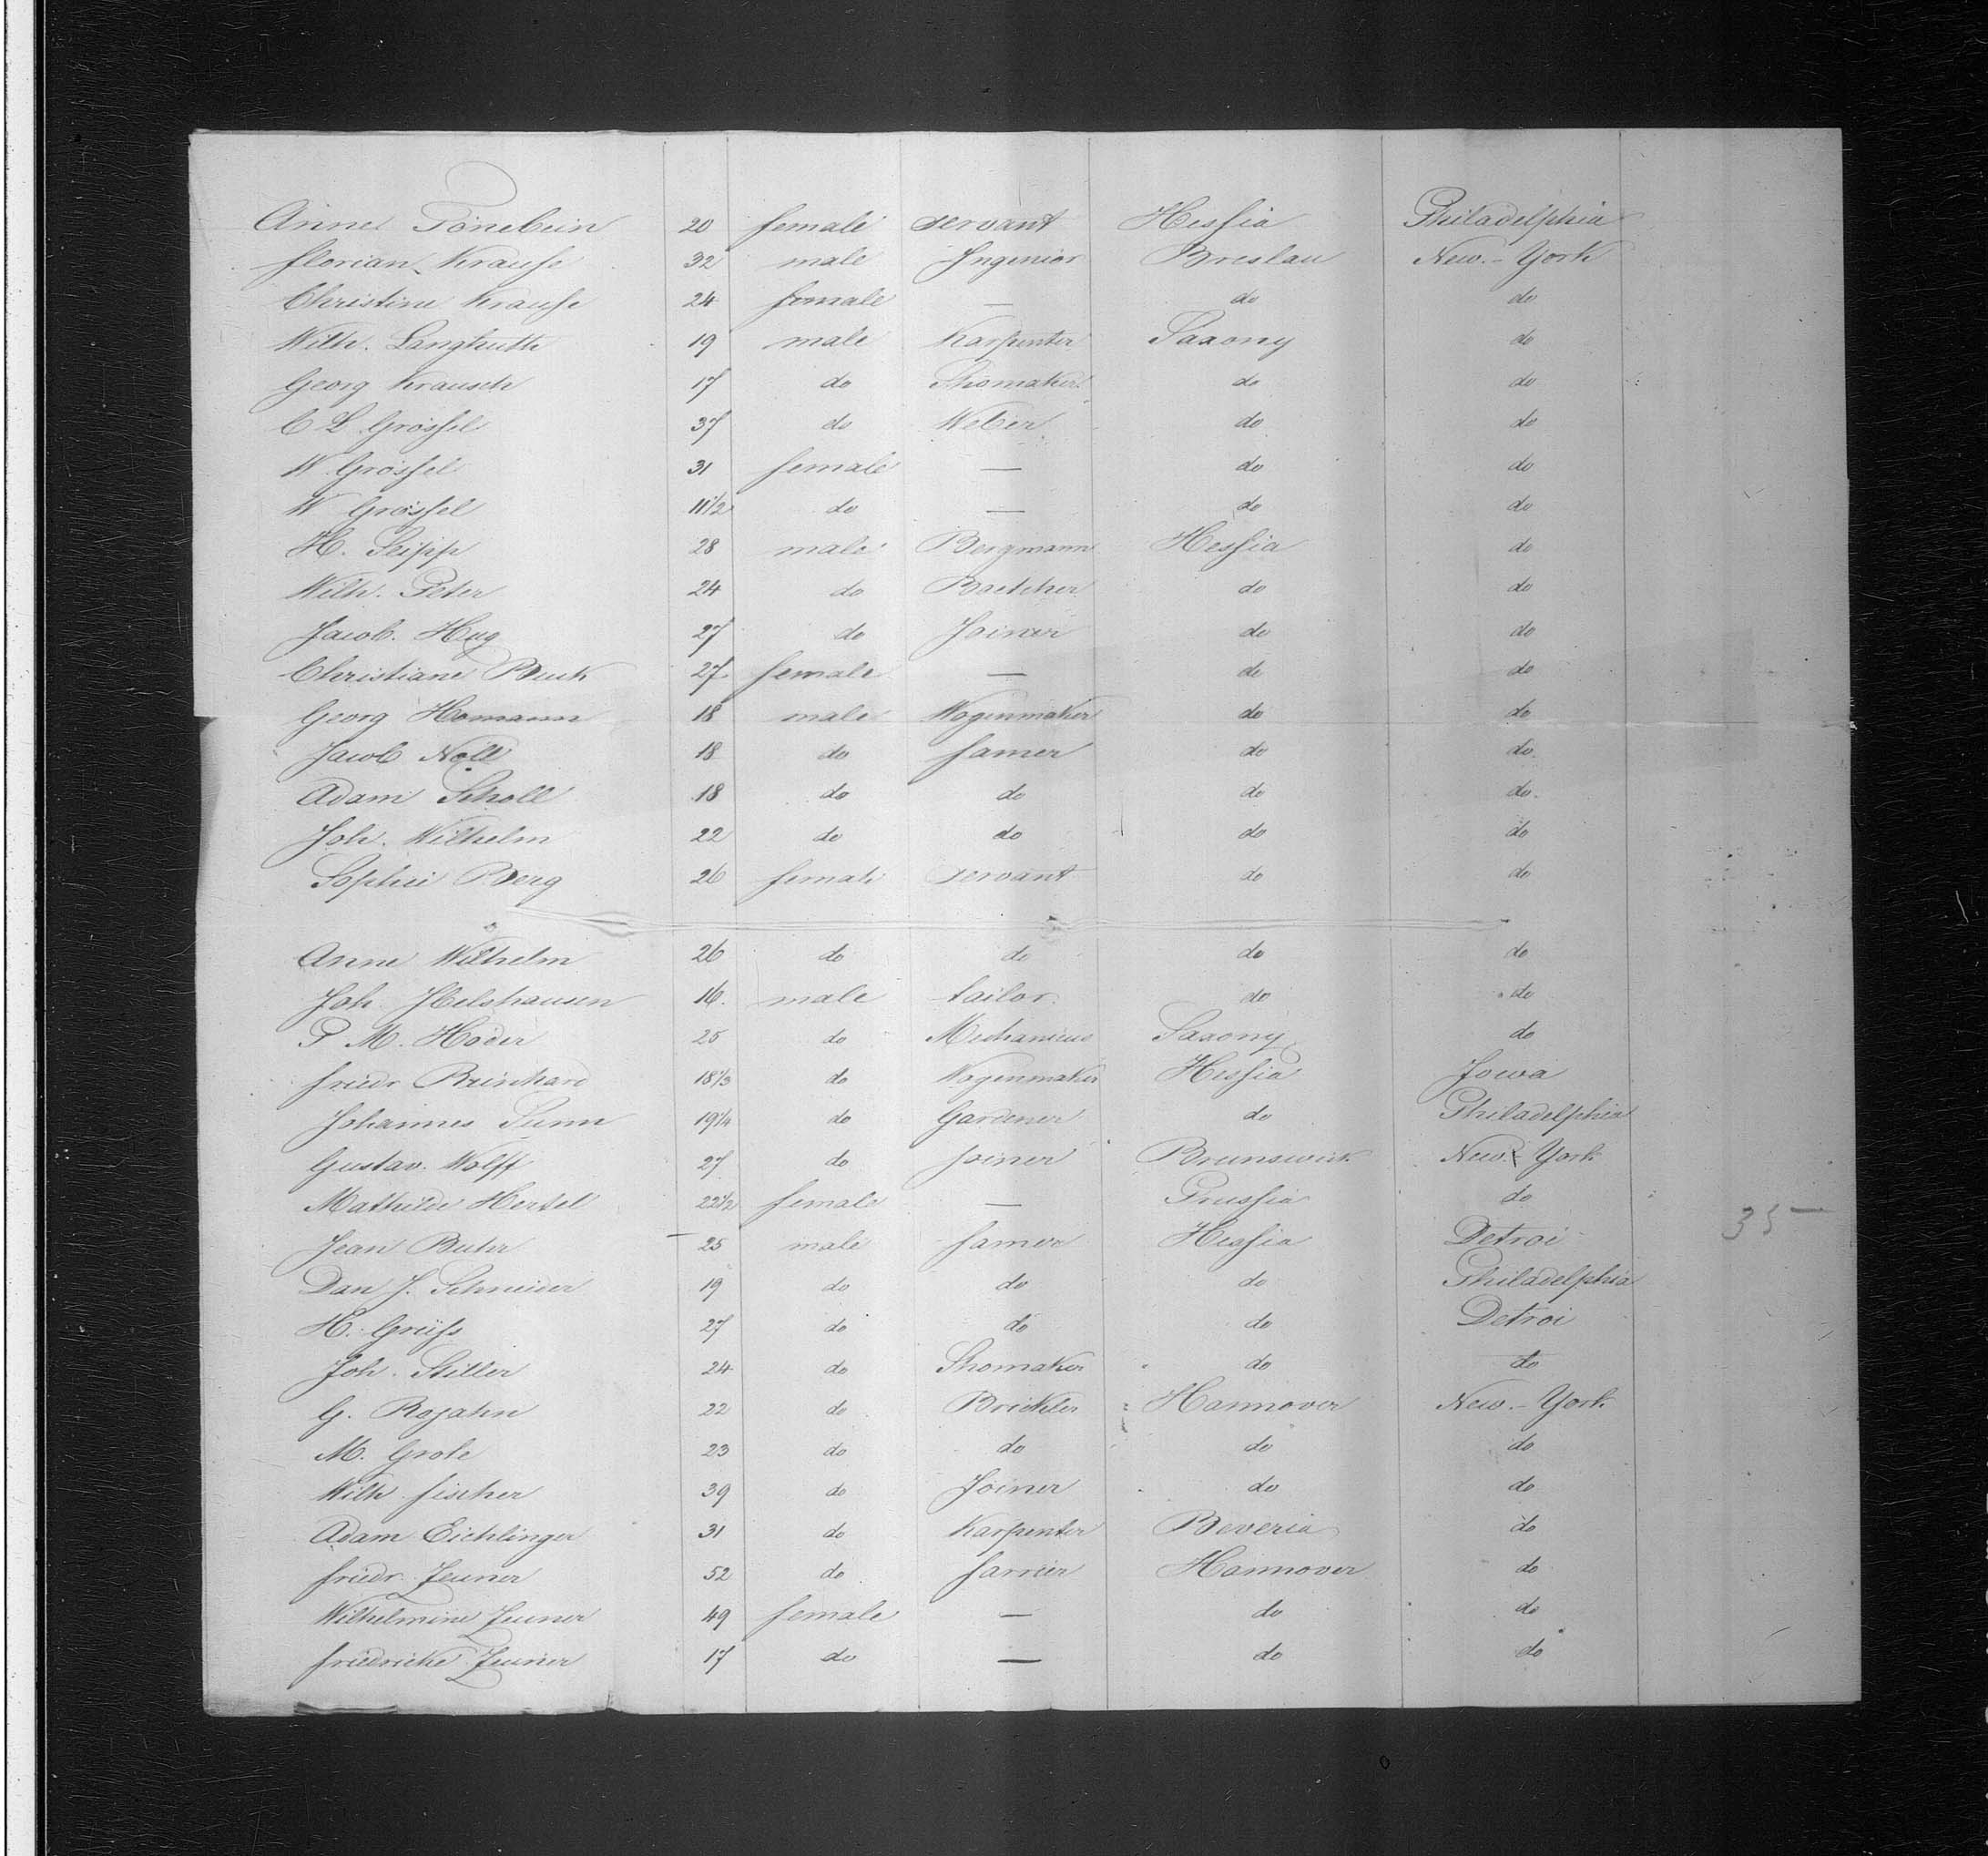 Anne Tönebein 20 female servant Hessia Philadelphia
Florian Krause 32 male Ingenior Breslau New-York
Christine Krause 24 female — do do
Wilh. Langhuth 19 male Karpenter Saxony do
Georg Krausch 17 do Shomaker do do
C L Grössel 37 do Weber do do
W Grössel 31 female — do do
W Grössel 11 1/2 do — do do
H. Seipp 28 male Bergmann Hessia do
Wilh. Peter 24 do Boetcher do do
Jacob. Hug 27 do Joiner do do
Christiane Buck 27 female — do do
Georg Homann 18 male Wogenmaker do do
Jacob Noll 18 do famer do do
Adam Scholl 18 do do do do
Joh. Wilhelm 22 do do do do
Sophie Berg 26 female servant do do
Anne Wilhelm 26 do do do do
Joh. 16. male tailor. do do
P M. Höder 25 do Mechanicus Saxony do
Friedr Reinhard 18 1/3 do Wogenmaker Hessia Jowa
Johannes Sunn 19 1/4 do Gardener do Philadelphia
Gustav. Wolff 27 do Joiner Brunswick New-York
Mathilde Hertel 22 1/2 female — Prussia do
Jean Buhr 25 male famer Hessia Detroi
35 —
Dan J. Schneider 19 do do do Philadelphia
H. Grüss 27 do do do Detroi
Joh. Stiller 24 do Shomaker do do
G. Rogahn 22 do Brickler Hannover New-York
M. Grote 23 do do do do
Wilh fischer 39 do Joiner do do
Adam Eichlinger 31 do Karpenter Beveria do
friedr. Zeuner 52 do farrier Hannover do
Wilhelmine Zeuner 49 female — do do
friedricke Zeuner 17 do — do do